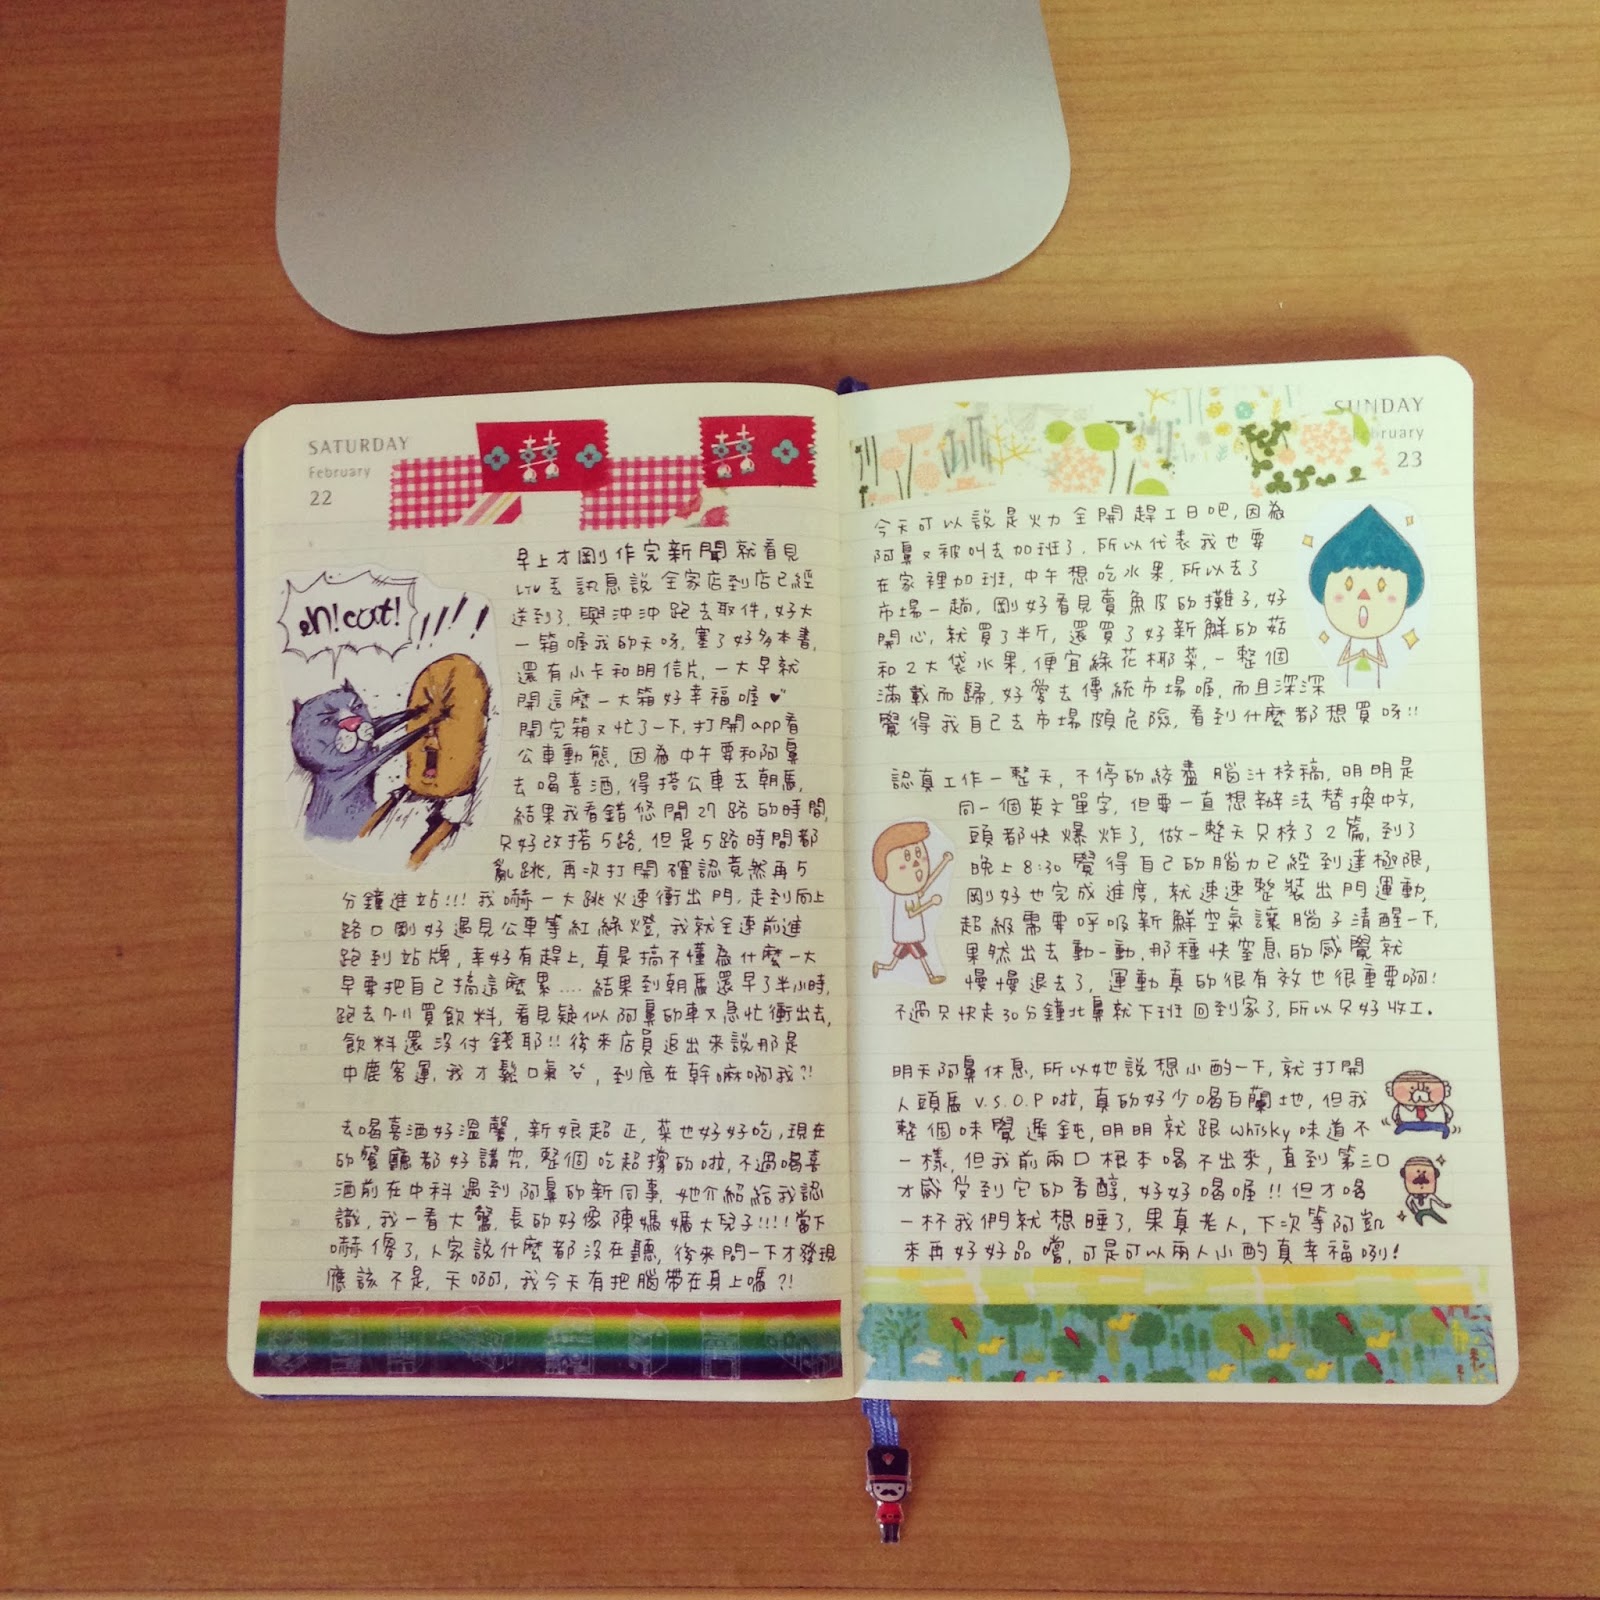 SATURDAY
February
22
早上才剛作完新聞就看見
丟訊息說全家店到店已經
送到了,興沖沖跑去取件,好大
一箱喔我的天呀,塞了好多本書,
還有小卡和明信片,一大早就
開這麼一大箱好幸福喔♥
開完箱又忙了一下,打開app看
公車動態,因為中午要和阿鼻
去喝喜酒,得搭公車去朝馬,
結果我看錯悠閒27路的時間,
只好改搭5路,但是5路時間都
亂跳,再次打開確認竟然再5
分鐘進站!!!我嚇一大跳火速衝出門,走到向上
路口剛好遇見公車等紅綠燈,我就全速前進
跑到站牌,幸好有趕上,真是搞不懂為什麼一大
早要把自己搞這麼累....結果到朝馬還早了半小時,
跑去7-11買飲料,看見疑似阿鼻的車又急忙衝出去,
飲料還沒付錢耶!!後來店員追出來說那是
中鹿客運,我才鬆口氣,到底在幹嘛啊我?!
去喝喜酒好溫馨,新娘超正,菜也好好吃,現在
的餐廳都好講究,整個吃超撐的啦,不過喝喜
酒前在中科遇到阿鼻的新同事,她介紹給我認
識,我一看大驚,長的好像陳媽媽大兒子!!!!當下
嚇傻了,人家說什麼都沒在聽,後來問一下才發現
應該不是,天啊,我今天有把腦帶在身上嗎?!
eh! cat!
!!!!
SUNDAY
bruary
23
今天可以說是火力全開趕工日吧,因為
阿鼻又被叫去加班了,所以代表我也要
在家裡加班,中午想吃水果,所以去了
市場一趟,剛好看見賣魚皮的攤子,好
開心,就買了半斤,還買了好新鮮的菇
和2大袋水果,便宜綠花椰菜,一整個
滿載而歸,好愛去傳統市場喔,而且深深
覺得我自己去市場頗危險,看到什麼都想買呀!!
認真工作一整天,不停的絞盡腦汁校稿,明明是
同一個英文單字,但要一直想辦法替換中文,
頭都快爆炸了,做一整天只校了2篇,到了
晚上8:30覺得自己的腦力已經到達極限,
剛好也完成進度,就速速整裝出門運動,
超級需要呼吸新鮮空氣讓腦子清醒一下,
果然出去動一動,那種快窒息的感覺就
慢慢退去了,運動真的很有效也很重要啊!
不過只快走30分鐘北鼻就下班回到家了,所以只好收工。
明天阿鼻休息,所以她說想小酌一下,就打開
人頭馬V.S.O.P啦,真的好少喝白蘭地,但我
整個味覺遲鈍,明明就跟whisky味道不
一樣,但我前兩口根本喝不出來,直到第三口
才感受到它的香醇,好好喝喔!!但才喝
一杯我們就想睡了,果真老人,下次等阿凱
來再好好品嚐,可是可以兩人小酌真幸福咧!